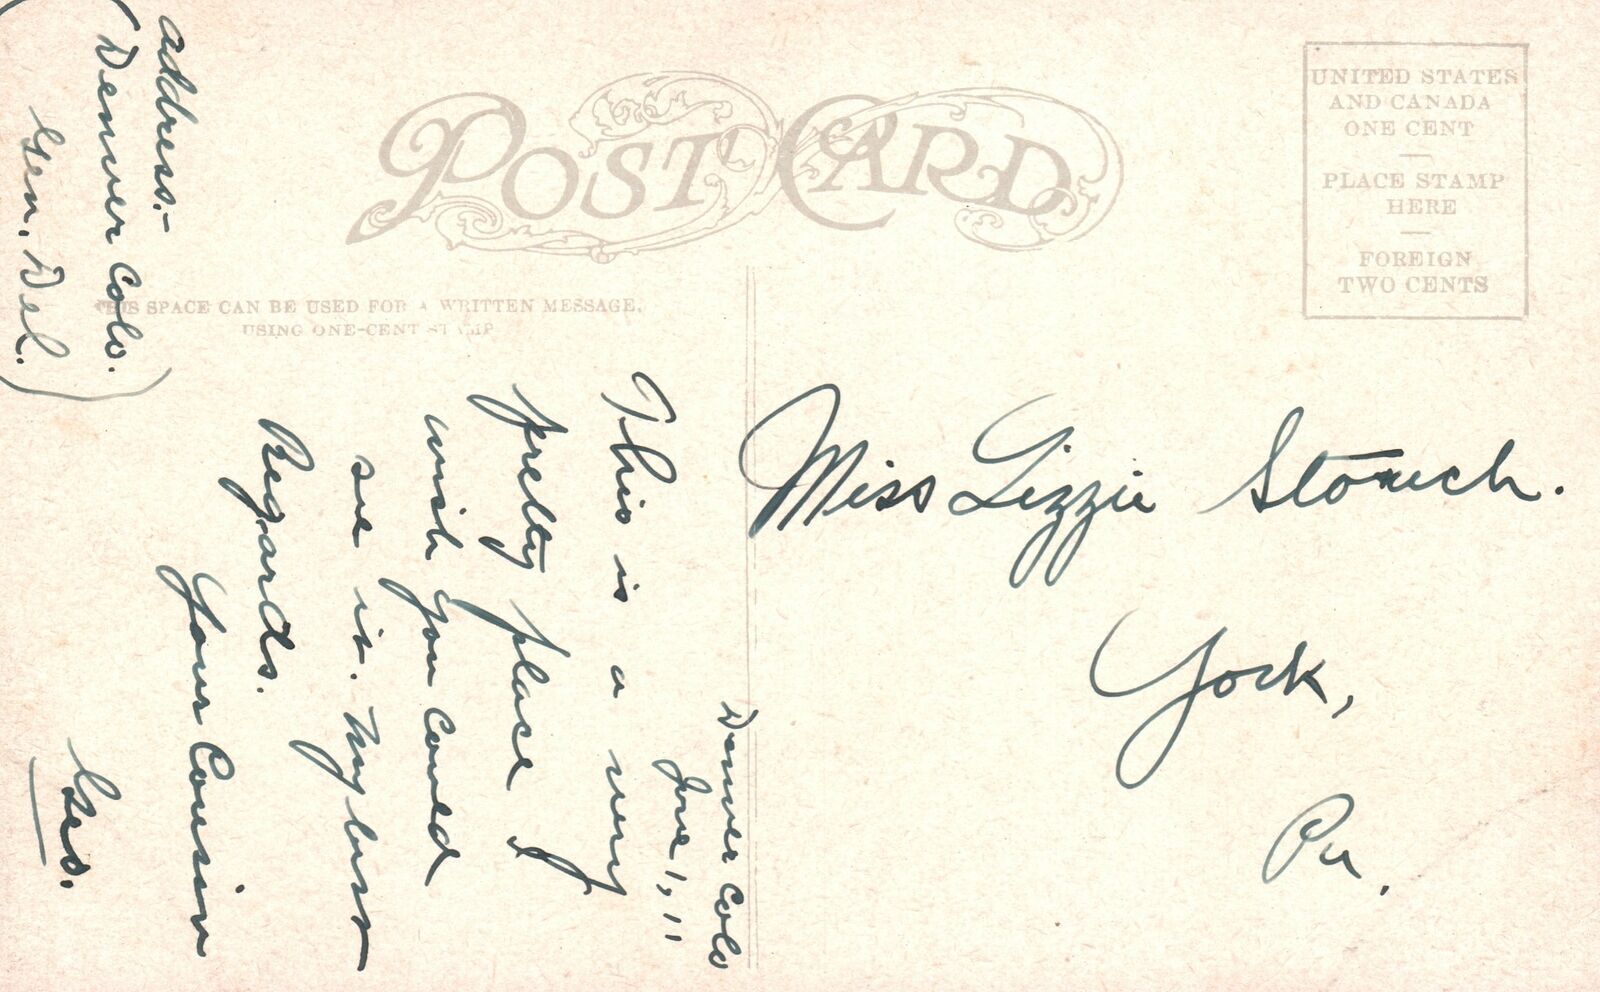 POST CARD
UNITED STATES
AND CANADA
ONE CENT
PLACE STAMP
HERE
FOREIGN
TWO CENTS
THIS SPACE CAN BE USED FOR A WRITTEN MESSAGE,
USING ONE-CENT STAMP
Denver Colo
June 1, 11
This is a very
pretty place I
wish you could
see it. My best
Regards.
Your Cousin
Geo.
address:-
(Denver Colo.
Gen. Del.)
Miss Lizzie
York,
Pa.